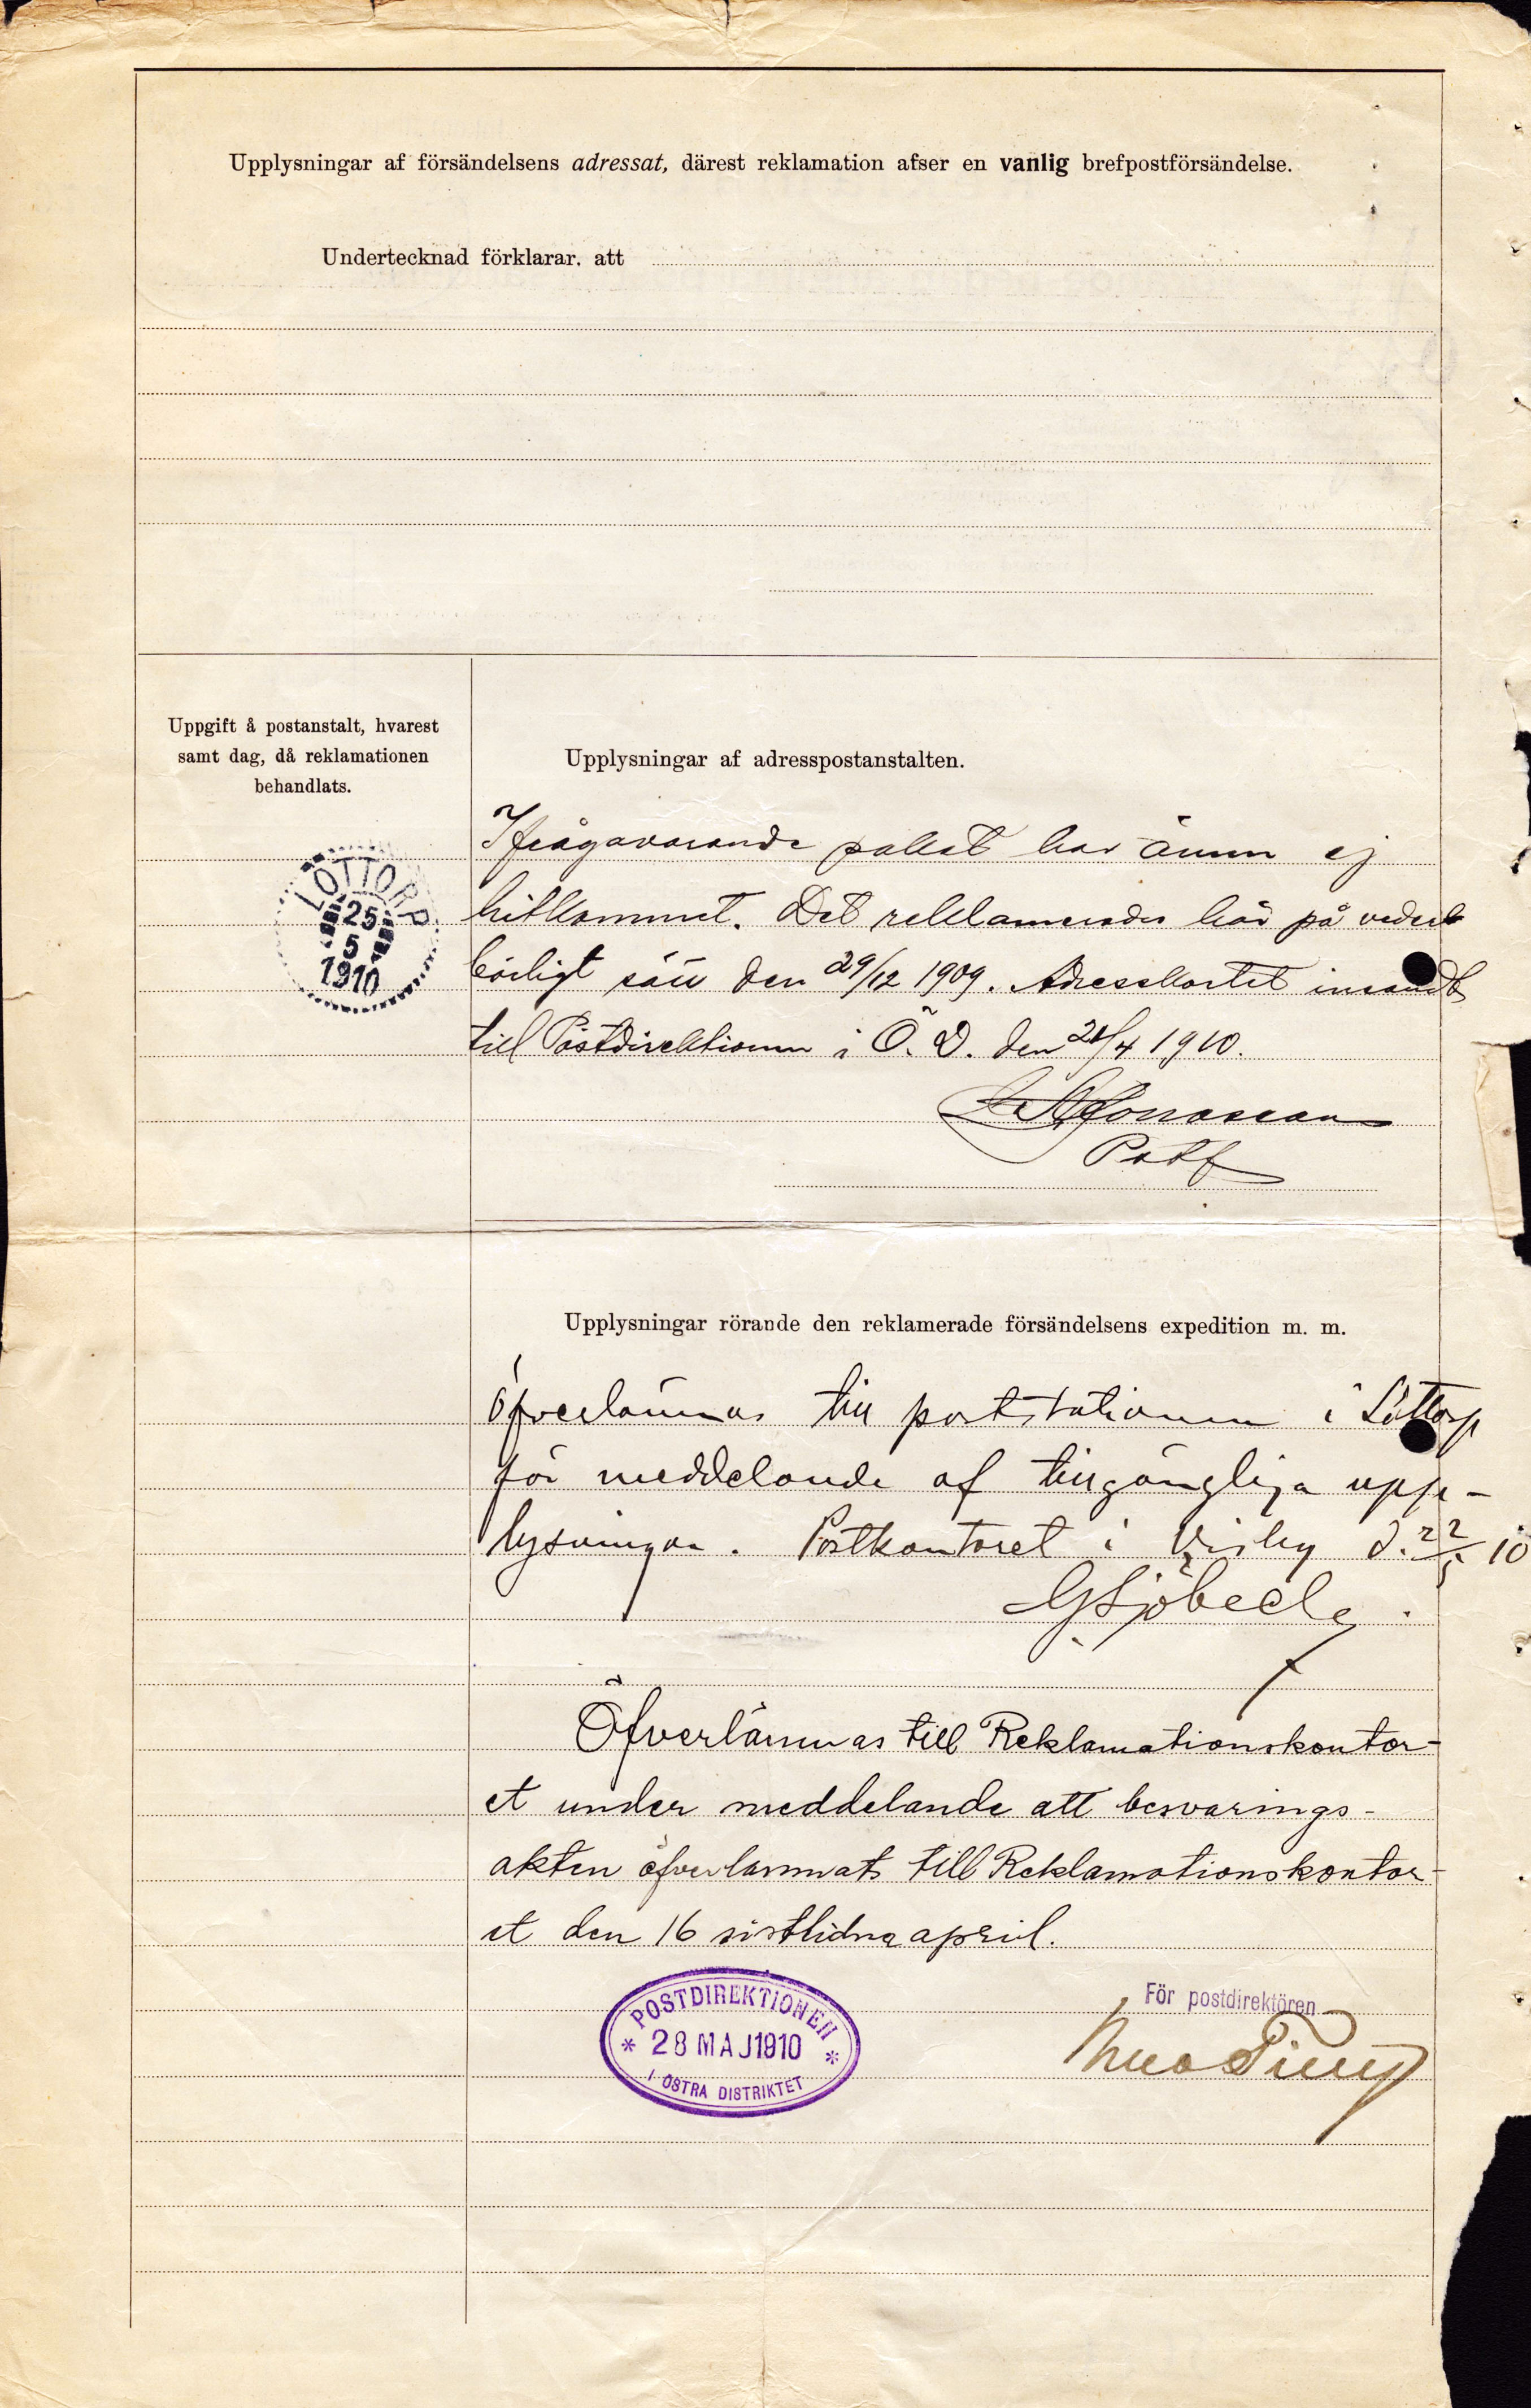 Upplysningar af försändelsens adressat, därest reklamation afser en vanlig brefpostförsändelse.
Undertecknad förklarar. att
Uppgift å postanstalt, hvarest
samt dag, då reklamationen
behandlats.
Upplysningar af adresspostanstalten.
LÖTTORP
25
5
1910
Ifrågavarande paket har ännu ej
hitkommit. Det reklamerades här på veder-
börligt sätt den 29/12 1909. Adresskortet insändt
till Postdirektionen i Ö. D. den /4 1910.
Jonasson
Upplysningar rörande den reklamerade försändelsens expedition m. m.
Öfverlämnas till poststationen i Löttorp
för meddelande af tillgängliga upp-
lysningar. Postkontoret i Visby d. 22/5 10
G Sjöbeck
Öfverlämnas till Reklamationskontor-
et under meddelande att besvarings-
akten öfverlämnats till Reklamationskontor-
et den 16 sistlidna april.
POSTDIREKTIONEN
* 28 MAJ 1910 *
I ÖSTRA DISTRIKTET
För postdirektören